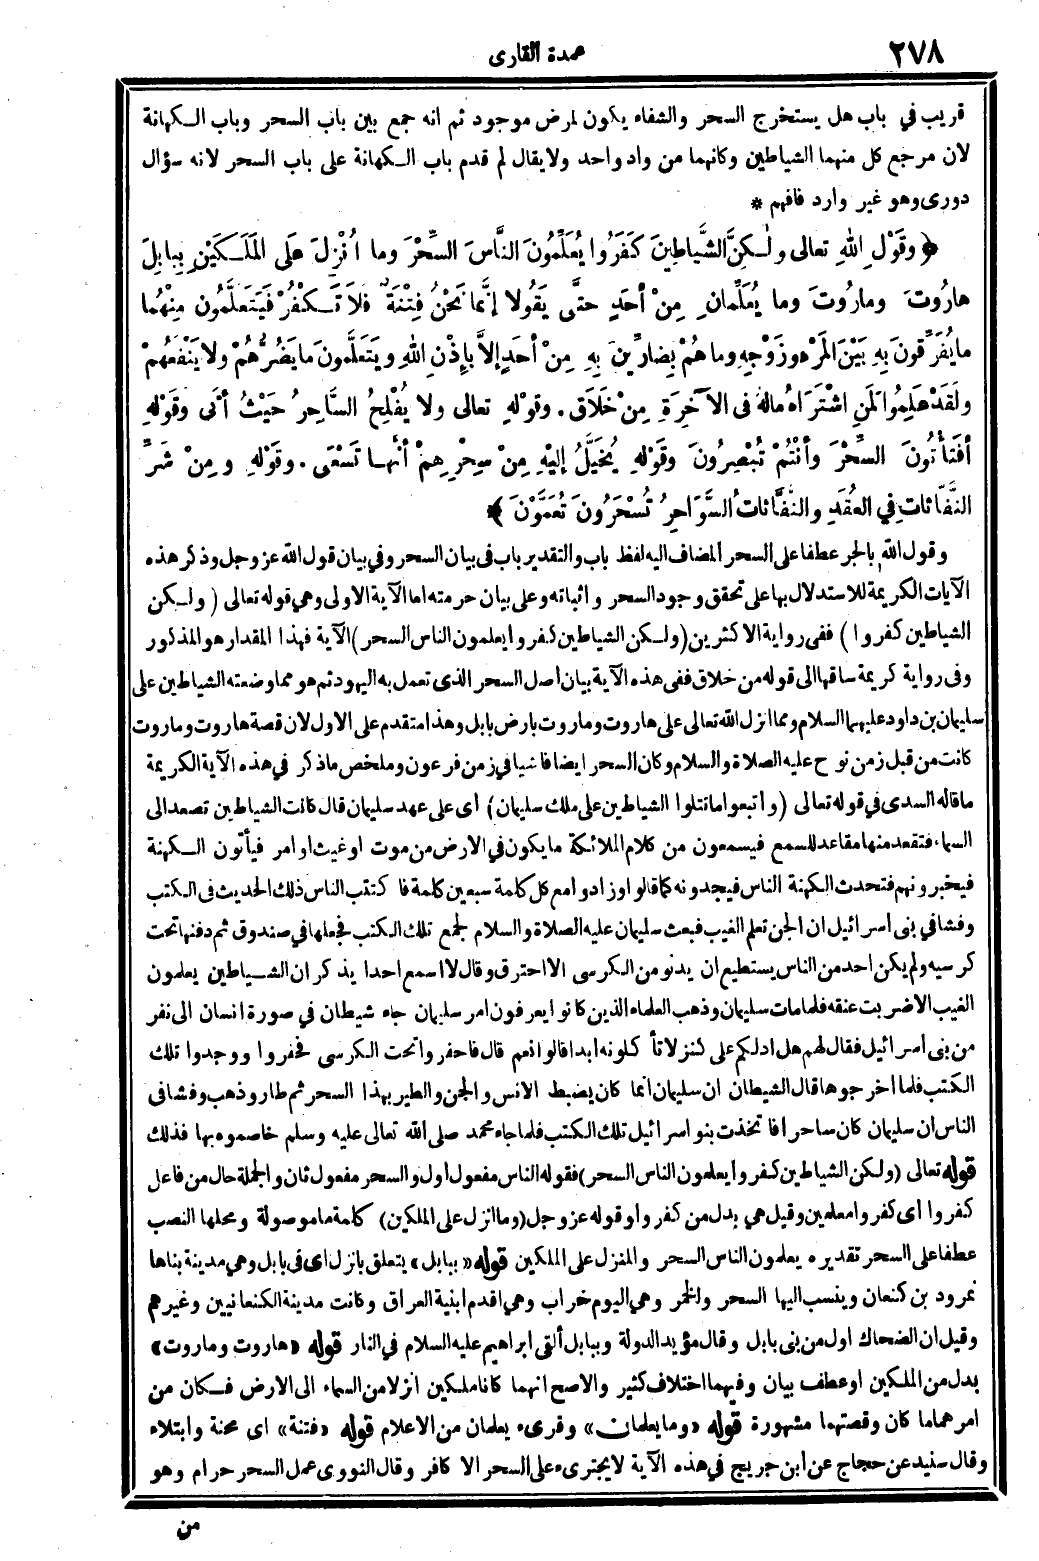 ٢٧٨
عمدة القارى
قريب في باب هل يستخرج السحر والشفاء يكون لمرض موجود ثم انه جمع بين باب السحر وباب الكهانة
لان مرجع كل منهما الشياطين وكانهما من واد واحد ولا يقال لم قدم باب الكهانة على باب السحر لانه سؤال
دورى وهو غير وارد فافهم *
﴿ وقَوْلِ اللهِ تعالى ولٰكِنَّ الشَّياطِينَ كَفَرُوا يُعَلِّمُونَ النَّاسَ السِّحْرَ وما أُنْزِلَ عَلَى المَلَكَيْنِ بِبابِلَ
هارُوتَ ومارُوتَ وما يُعَلِّمانِ مِنْ أحَدٍ حتَّى يَقُولا إنَّما نَحْنُ فِتْنَةٌ فلاَ تَكْفُرْ فَيَتَعلَّمُون مِنْهُما
ما يُفَرِّقُونَ بِهِ بَيْنَ المَرْءِ وزَوْجِهِ وما هُمْ بِضارِّينَ بِهِ مِنْ أحَدٍ إلاَّ بإِذْنِ اللهِ ويَتَعلَّمونَ ما يَضُرُّهُمْ ولا يَنْفَعُهُمْ
ولَقَدْ عَلِمُوا لَمَنِ اشْتَرَاهُ مالَهُ فى الآخِرَةِ مِنْ خَلَاق . وقوْلِهِ تعالى ولا يُفْلِحُ السَّاحِرُ حَيْثُ أتَى وقَوْلِهِ
أفَتَأْتُونَ السِّحْرَ وأنْتُمْ تُبْصِرُونَ وقَوْلِهِ يُخَيَّلُ إليْهِ مِنْ سِحْرِهِمْ أنَّهـا تَسْعَى . وقَوْلِهِ ومِنْ شَرِّ
النَّفَّاثَاتِ في العُقَدِ والنَّفَّاثاتُ السَّوَاحِرُ تُسْحَرُونَ تُعَمَّوْنَ ﴾
وقول الله بالجر عطفا على السحر المضاف اليه لفظ باب والتقدير باب فى بيان السحر وفي بيان قول الله عز وجل وذكر هذه
الآيات الكريمة للاستدلال بها على تحقق وجود السحر واثباته وعلى بيان حرمته اما الآية الاولى وهي قوله تعالى ( ولكن
الشياطين كفروا ) ففى رواية الاكثرين (ولكن الشياطين كفروا يعلمون الناس السحر) الآية فهذا المقدار هو المذكور
وفى رواية كريمة ساقها الى قوله من خلاق ففى هذه الآية بيان أصل السحر الذى تعمل به اليهود ثم هو مما وضعته الشياطين على
سليمان بن داود عليهما السلام ومما انزل الله تعالى على هاروت وماروت بارض بابل وهذا متقدم على الاول لان قصة هاروت وماروت
كانت من قبل زمن نوح عليه الصلاة والسلام وكان السحر ايضا فاشيا في زمن فرعون وملخص ماذكر في هذه الآية الكريمة
ماقاله السدى في قوله تعالى (واتبعوا ما تتلوا الشياطين على ملك سليمان) اى على عهد سليمان قال كانت الشياطين تصعد الى
السماء فتقعد منها مقاعد للسمع فيسمعون من كلام الملائكة ما يكون في الارض من موت او غيث او امر فيأتون الكهنة
فيخبرونهم فتحدث الكهنة الناس فيجدونه كما قالوا وزادوا مع كل كلمة سبعين كلمة فاكتتب الناس ذلك الحديث فى الكتب
وفشا في بنى اسرائيل ان الجن تعلم الغيب فبعث سليمان عليه الصلاة والسلام لجمع تلك الكتب فجعلها في صندوق ثم دفنها تحت
كرسيه ولم يكن احد من الناس يستطيع ان يدنو من الكرسى الا احترق وقال لا اسمع احدا يذكر ان الشياطين يعلمون
الغيب الا ضربت عنقه فلما مات سليمان وذهب العلماء الذين كانوا يعرفون امر سليمان جاء شيطان في صورة انسان الى نفر
من بنى اسرائيل فقال لهم هل ادلكم على كنز لا تأكلونه ابدا قالوا نعم قال فاحفروا تحت الكرسى فحفروا ووجدوا تلك
الكتب فلما اخرجوها قال الشيطان ان سليمان انما كان يضبط الانس والجن والطير بهذا السحر ثم طار وذهب وفشا فى
الناس ان سليمان كان ساحرا فاتخذت بنو اسرائيل تلك الكتب فلما جاء محمد صلى الله تعالى عليه وسلم خاصموه بها فذلك
قوله تعالى (ولكن الشياطين كفروا يعلمون الناس السحر) فقوله الناس مفعول اول والسحر مفعول ثان والجملة حال من فاعل
كفروا اى كفروا معلمين وقيل هي بدل من كفروا وقوله عز وجل (وما انزل على الملكين) كلمة ما موصولة ومحلها النصب
عطفا على السحر تقديره يعلمون الناس السحر والمنزل على الملكين قوله «ببابل» يتعلق بانزل اى فى بابل وهي مدينة بناها
نمرود بن كنعان وينسب اليها السحر والخمر وهي اليوم خراب وهي اقدم ابنية العراق وكانت مدينة الكنعانيين وغيرهم
وقيل ان الضحاك اول من بنى بابل وقال مؤيد الدولة وببابل ألقى ابراهيم عليه السلام في النار قوله «هاروت وماروت»
بدل من الملكين او عطف بيان وفيهما اختلاف كثير والاصح انهما كانا ملكين انزلا من السماء الى الارض فكان من
امرهما ما كان وقصتهما مشهورة قوله «وما يعلمان» وقرىء يعلمان من الاعلام قوله «فتنة» اى محنة وابتلاء
وقال سنيد عن حجاج عن ابن جريج في هذه الآية لا يجترىء على السحر الا كافر وقال النووى عمل السحر حرام وهو
من